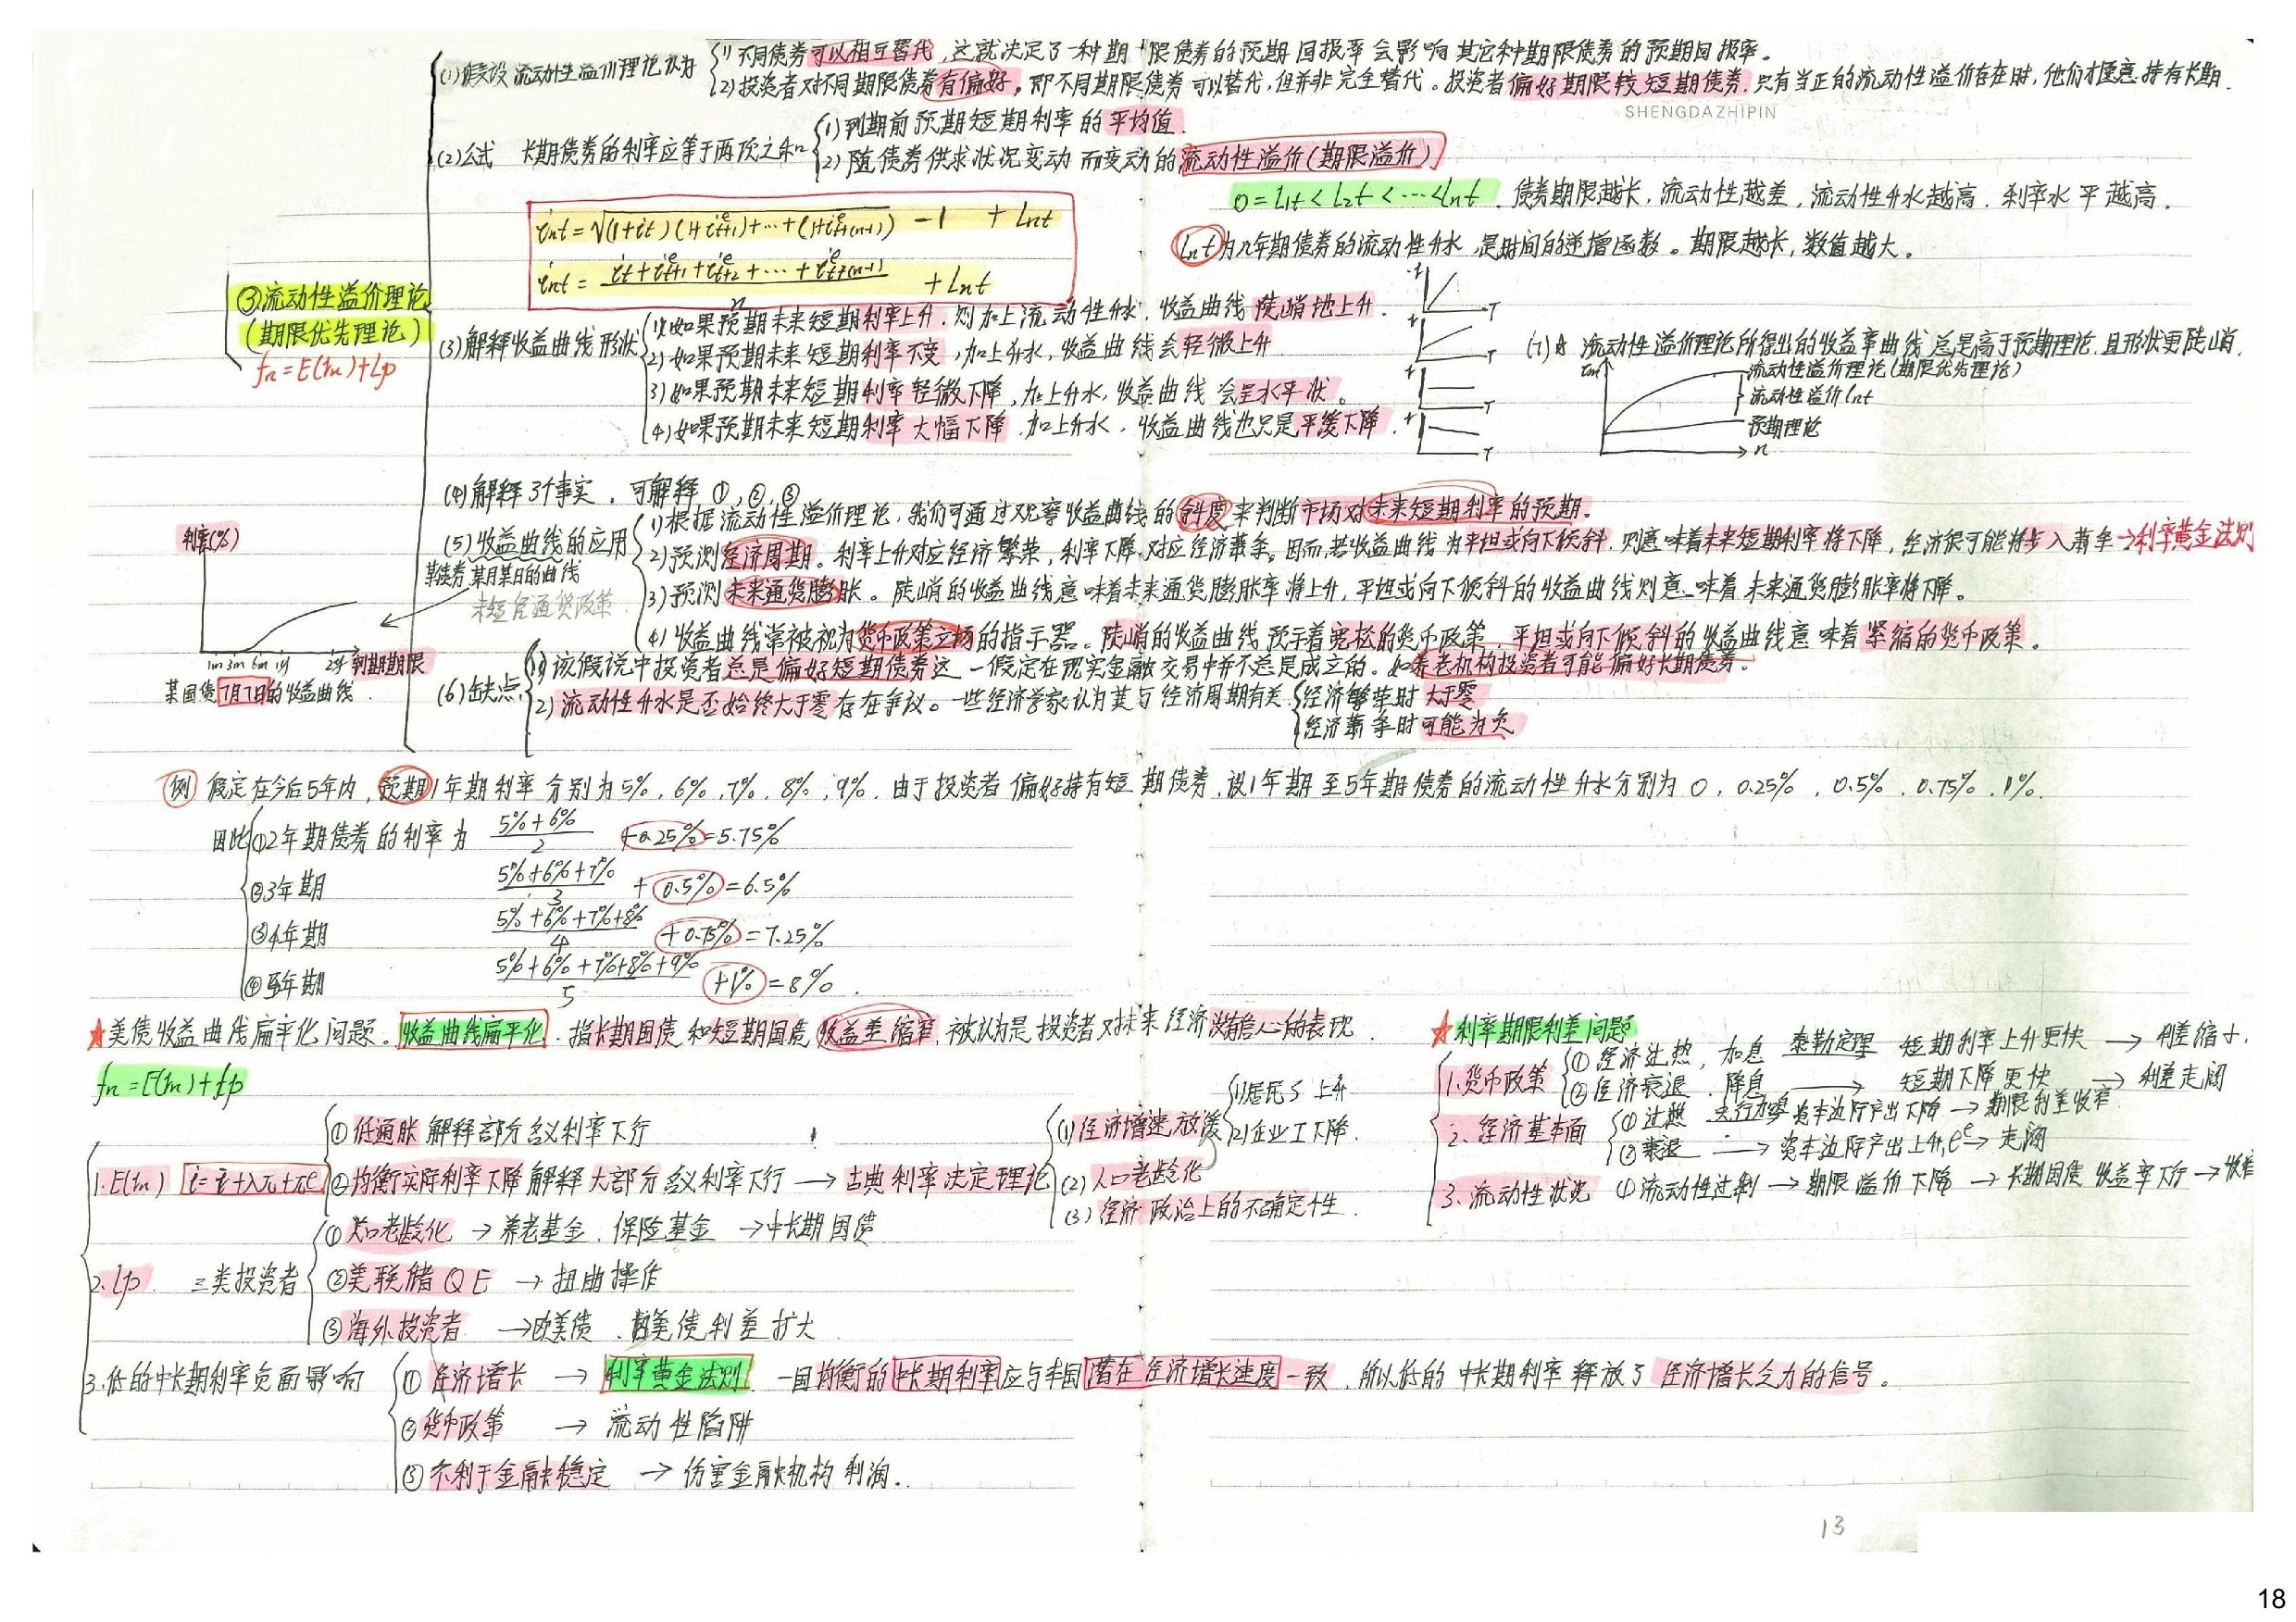 (1)假设 流动性溢价理论认为
1) 不同债券可以相互替代,这就决定了一种期限债券的预期回报率会影响其它种期限债券的预期回报率。
2) 投资者对不同期限债券有偏好,即不同期限债券可以替代,但并非完全替代。投资者偏好期限较短期债券.只有当正的流动性溢价存在时,他们才愿意持有长期.
SHENGDAZHIPIN
(2)公式 长期债券的利率应等于两项之和
1) 到期前预期短期利率的平均值.
2) 随债券供求状况变动而变动的流动性溢价(期限溢价)
0=l1t<l2t<…<lnt.债券期限越长,流动性越差,流动性升水越高.利率水平越高.
int=√(1+it)(1+i^e t+1)+…+(1+i^e t+(n-1)) -1 + lnt
lnt为n年期债券的流动性升水 是时间的递增函数。期限越长,数值越大。
int= (it+i^e t+1+i^e t+2+…+i^e t+(n-1))/n + lnt
③流动性溢价理论
(期限优先理论)
fn=E(rn)+Lp
(3)解释收益曲线形状
1) 如果预期未来短期利率上升.则加上流动性升水,收益曲线陡峭地上升.
2) 如果预期未来短期利率不变,加上升水,收益曲线会轻微上升
3) 如果预期未来短期利率轻微下降,加上升水,收益曲线会呈水平状。
4) 如果预期未来短期利率大幅下降.加上升水,收益曲线也只是平缓下降.
T
T
T
T
(7) 流动性溢价理论所得出的收益率曲线总是高于预期理论.且形状更陡峭.
流动性溢价理论(期限优先理论)
流动性溢价lnt
预期理论
n
(4)解释3个事实.可解释①,②,③
(5)收益曲线的应用
1) 根据流动性溢价理论,我们可通过观察收益曲线的斜度来判断市场对未来短期利率的预期.
2) 预测经济周期。利率上升对应经济繁荣,利率下降对应经济萧条。因而,若收益曲线为平坦或向下倾斜.则意味着未来短期利率将下降,经济很可能将步入萧条→利率黄金法则
3) 预测未来通货膨胀。陡峭的收益曲线意味着未来通货膨胀率将上升,平坦或向下倾斜的收益曲线则意味着未来通货膨胀率将下降。
4) 收益曲线常被视为货币政策立场的指示器。陡峭的收益曲线预示着宽松的货币政策,平坦或向下倾斜的收益曲线意味着紧缩的货币政策。
某债券某月某日的曲线
利率(%)
1m 3m 6m 1y
到期期限
某国债7月7日的收益曲线.
(6)缺点
1) 该假说中投资者总是偏好短期债券这一假定在现实金融交易中并不总是成立的。如养老机构投资者可能偏好长期债券.
2) 流动性升水是否始终大于零存在争议。一些经济学家认为其与经济周期有关
经济繁荣时 大于零
经济萧条时可能为负
例 假定在今后5年内,预期1年期利率分别为5%,6%,7%,8%,9%.由于投资者偏好持有短期债券,设1年期至5年期债券的流动性升水分别为0,0.25%,0.5%,0.75%,1%.
因此①2年期债券的利率为 (5%+6%)/2 +0.25%=5.75%
②3年期 (5%+6%+7%)/3 +0.5%=6.5%
③4年期 (5%+6%+7%+8%)/4 +0.75%=7.25%
④5年期 (5%+6%+7%+8%+9%)/5 +1%=8%.
★美债收益曲线扁平化问题。收益曲线扁平化.指长期国债和短期国债收益差缩窄,被认为是投资者对未来经济没信心的表现.
fn=E(rn)+Lp
1.E(rn)
①低通胀解释部分名义利率下行
②均衡实际利率下降解释大部分名义利率下行→古典利率决定理论
(1)经济增速放缓
1)居民S上升
2)企业I下降.
(2)人口老龄化
(3)经济政治上的不确定性.
2.Lp. 三类投资者
①人口老龄化→养老基金.保险基金→中长期国债
②美联储QE→扭曲操作
③海外投资者→欧美债.美债利差扩大
3.低的中长期利率负面影响
①经济增长→利率黄金法则.一国均衡的中长期利率应与本国潜在经济增长速度一致.所以低的中长期利率释放了经济增长乏力的信号。
②货币政策→流动性陷阱
③不利于金融稳定→伤害金融机构利润.
★利率期限利差问题
1.货币政策
①经济过热,加息 泰勒定理 短期利率上升更快→利差缩小.
②经济衰退.降息→短期下降更快→利差走阔
2.经济基本面
①过热 资本边际产出下降→期限利差收窄
②衰退→资本边际产出上升→走阔
3.流动性状况 ①流动性过剩→期限溢价下降→长期国债收益率下行→收窄
13
18